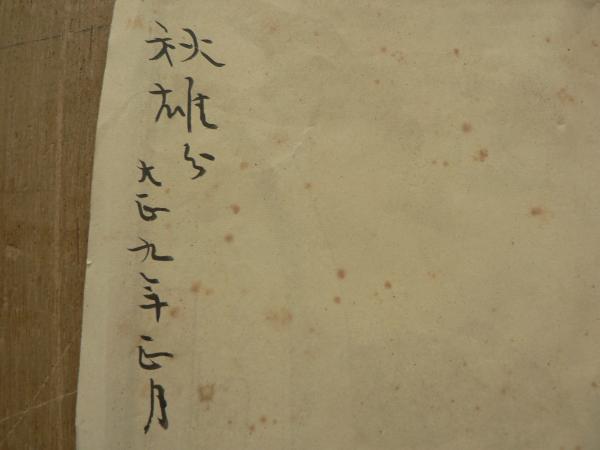 秋雄分
大正九年正月